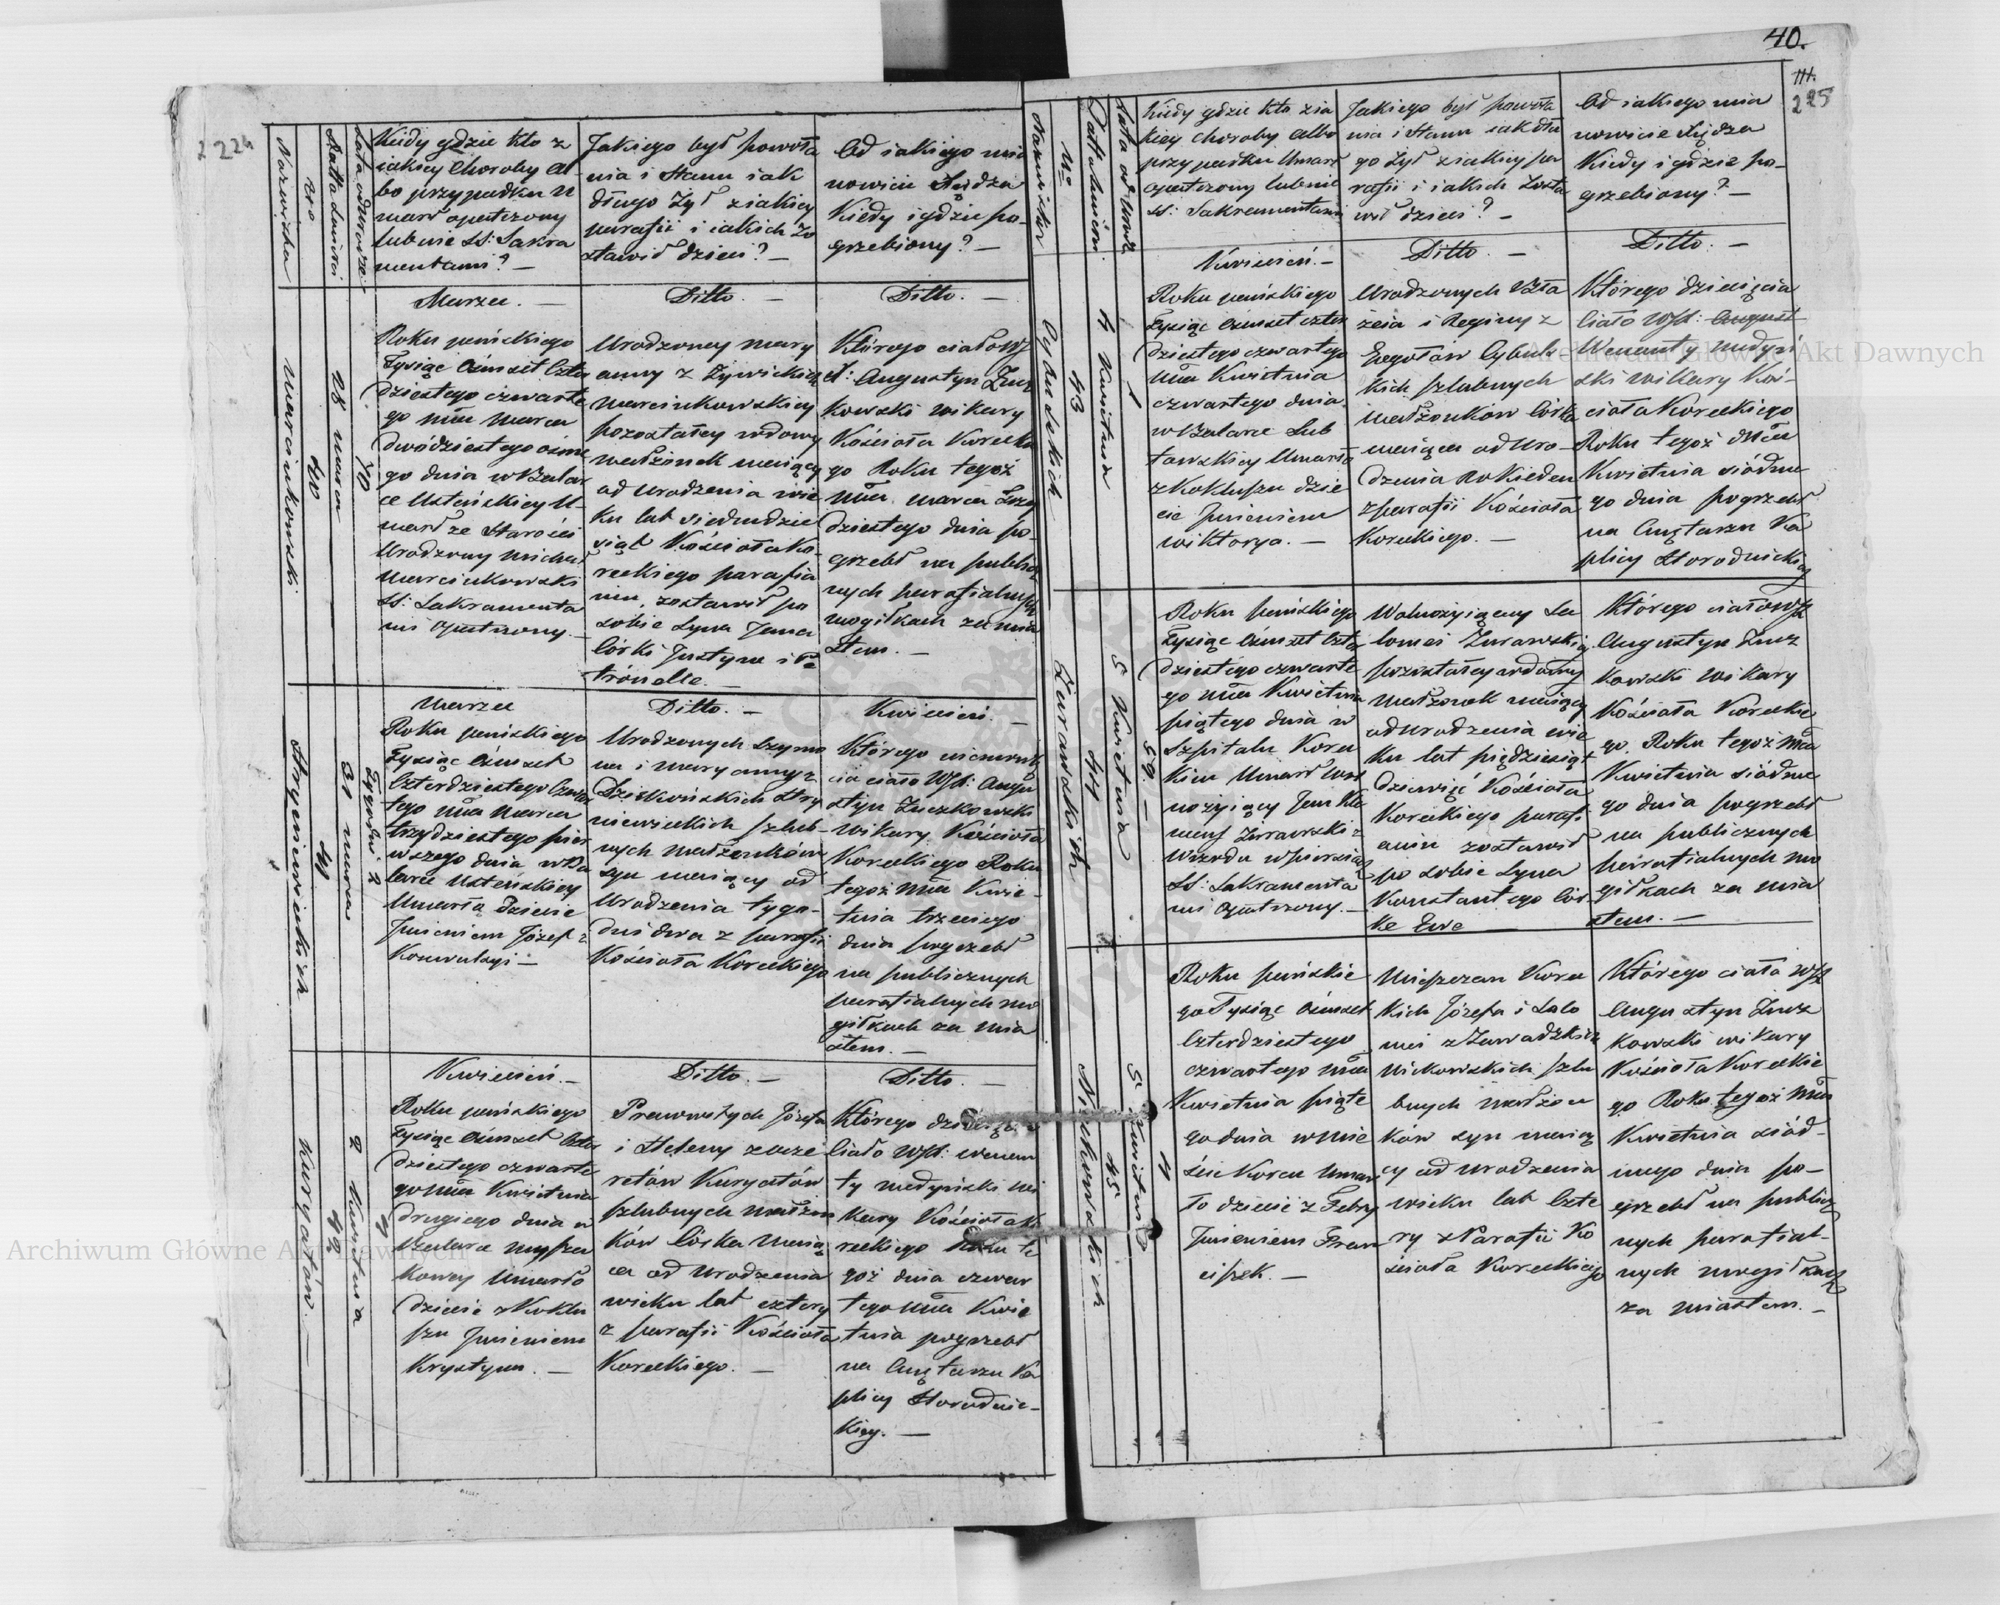 40.
III.
225
224
Nazwiska
Nro
Datta śmierci
Lata od urodze:
Kiedy gdzie kto z
iakiey Choroby al
bo przypadku u
marł opatrzony
lub nie SS: Sakra
mentami? —
Jakiego był powoła
nia i Stanu iak
długo żył z iakiey
parafii i iakich zo
stawił dzieci? —
Od iakiego mia
nowicie Xiędza
Kiedy i gdzie po-
grzebiony? —
Marcinkowski
40
28 marca
70
Marzec. —
Roku pańskiego
Tysiąc Ośmset Czter
dziestego czwarte
go Mca Marca
dwódziestego ósme
go dnia w Bazlar
ce Usteńskiey U-
marł ze Starości
Urodzony Michał
Marcinkowski
SS: Sakramenta
mi opatrzony. —
Ditto. —
Urodzoney Mary
anny z Żywickich
Marcinkowskiey
pozostałey wdowy
małżonek maiący
od urodzenia wie
ku lat siedmdzie
siąt Kościoła Ko-
reckiego parafia
nin, zostawił po
sobie Syna Jana
Córki Justynę i Pe
tronellę. —
Ditto. —
Którego ciało W
X: Augustyn Żucz
kowski wikary
Kościoła Korecke
go Roku tegoż
Mca. Marca Trzy
dziestego dnia po-
grzebł na public
nych parafialnych
mogiłkach za mia
stem. —
41
31 marca
Tygodni 2
Marzec
Roku pańskiego
Tysiąc Ośmset
Czterdziestego Czwar
tego Mca Marca
trzydziestego pier
wszego dnia w
Usteńskiey
Umarło Dziecie
Jmieniem Józef z
Konwulsyi —
Ditto. —
Urodzonych Szymo
na i Maryanny z
niewickich szlub-
nych małżonków
syn maiący od
Urodzenia tygo-
dni dwa z parafii
Kościoła Koreckiego
Kwiecień. —
Którego niemowlę
cia ciało WX: Augu
styn Żuczkowski
wikary Kościoła
Koreckiego Roku
tegoż Mca Kwie-
tnia trzeciego
dnia pogrzebł
na publicznych
parafialnych mo
giłkach za mia
stem. —
Kurgatów. —
42
2 Kwietnia
4
Kwiecień. —
Roku pańskiego
Tysiąc Ośmset Czter
dziestego czwarte
go Mca Kwietnia
drugiego dnia w
kowey Umarło
dziecie z Koklu
szu Jmieniem
Krystyna. —
Ditto. —
Pracowitych Józefa
i Heleny
Kurgatów
szlubnych małżon
ków Córka maią
ca od urodzenia
wieku lat cztery
z parafii Kościoła
Koreckiego. —
Ditto. —
Którego dziecięcia
Ciało WX: Wenan
ty Medyński wi
kary Kościoła Ko
reckiego Roku te
goż dnia czwar
tego Mca Kwie
tnia pogrzebł
na Cmętarzu Ka
plicy Horodnic-
kiey. —
Nazwiska
No
Datta śmierci
Lata od urodz
Kiedy gdzie kto z ia
kiey choroby albo
przypadku Umarł
opatrzony lub nie
SS: Sakramentami
Jakiego był powoła
nia i Stanu iak dłu
go żył z iakiey pa
rafii i iakich zosta
wił dzieci? —
Od iakiego mia
nowicie Xiędza
Kiedy i gdzie po-
grzebiony? —
Cybulskich
43
4 Kwietnia
1
Kwiecień. —
Roku pańskiego
Tysiąc Ośmset czter
dziestego czwartego
Mca Kwietnia
czwartego dnia
tawskiey Umarło
z Kokluszu dzie
cie Jmieniem
Wiktorya. —
Ditto. —
Urodzonych Bła
żeia i Reginy z
Cybuls
kich szlubnych
małżonków Córka
maiąca od Uro-
dzenia Rok ieden
z parafii Kościoła
Koreckiego. —
Ditto. —
Którego dziecięcia
Ciało WX: August
Wenanty Medyń
ski wikary Koś-
cioła Koreckiego
Roku tegoż Mca
Kwietnia siódme
go dnia pogrzebł
na Cmętarzu Ka
plicy Horodnickiey
Żurawskich
44
5 Kwietnia
59. —
Roku pańskiego
Tysiąc Ośmset Czter
dziestego czwarte
go Mca Kwietnia
piątego dnia w
Szpitalu Korec
kim Umarł wol
nożyiący Jan Kle
mens Żurawski z
Wrzodu w piersiach
SS: Sakramenta
mi opatrzony. —
Wolnożyiącey Sa
lomei Żurawskiey
pozostałey wdowy
małżonek maiący
od urodzenia wie
ku lat pięćdziesiąt
dziewięć Kościoła
Koreckiego parafi
anin zostawił
po sobie Syna
Konstantego Cór
kę Ewę
Którego ciało WX
Augustyn Żucz
kowski wikary
Kościoła Koreckie
go. Roku tegoż Mca
Kwietnia siódme
go dnia pogrzebł
na publicznych
parafialnych mo
giłkach za mia
stem. —
45
5 Kwietnia
4
Roku pańskie
go Tysiąc Ośmset
Czterdziestego
czwartego Mca
Kwietnia piąte
go dnia w mie
ście Korcu umar
ło dziecie z Febry
Jmieniem Fran
ciszek. —
Mieszczan Korec
kich Józefa i Salo
mei z Zawadzkich
szlu
bnych małżon
ków syn maią
cy od urodzenia
wieku lat czte
ry z Parafii Ko
ścioła Koreckiego
Którego ciało WX
Augustyn Żucz
kowski wikary
Kościoła Koreckie
go Roku tegoż Mca
Kwietnia siód-
mego dnia po-
grzebł na publicz
nych parafial-
nych mogiłkach
za miastem. —
Archiwum Główne Akt Dawnych
Archiwum Główne Akt Dawnych